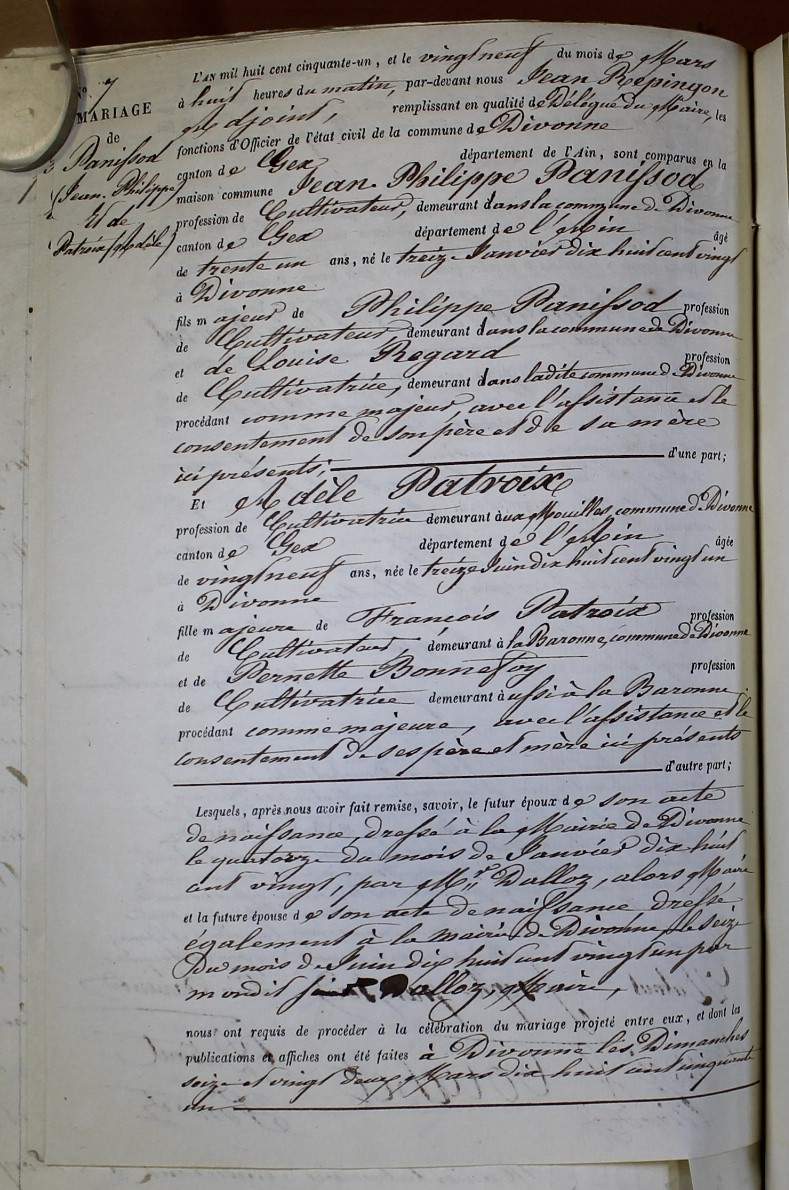 No 7
MARIAGE
de
Panissod
(Jean-Philippe)
Et de
Patroix (Adèle)
L'AN mil huit cent cinquante-un, et le vingt neuf du mois de Mars
à huit heures du matin, par-devant nous Jean Répingon
Adjoint, remplissant en qualité de Délégué du Maire, les
fonctions d'Officier de l'état civil de la commune de Divonne
canton de Gex département de l'Ain, sont comparus en la
maison commune Jean-Philippe Panissod
profession de Cultivateur, demeurant dans la commune de Divonne
canton de Gex département de l'Ain âgé
de trente un ans, né le treize Janvier dix huit cent vingt
à Divonne
fils majeur de Philippe Panissod profession
de Cultivateur demeurant dans la commune de Divonne
et de Louise Regard profession
de Cultivatrice, demeurant dans ladite commune de Divonne
procédant comme majeur, avec l'assistance et le
consentement de son père et de sa mère
ici présents; d'une part;
Et Adèle Patroix
profession de Cultivatrice demeurant aux Mouilles, commune de Divonne
canton de Gex département de l'Ain âgée
de vingt neuf ans, née le treize Juin dix huit cent vingt un
à Divonne
fille majeure de François Patroix profession
de Cultivateur, demeurant à la Baronne, commune de Divonne
et de Pernette Bonnefoy profession
de Cultivatrice demeurant aussi à la Baronne
procédant comme majeure, avec l'assistance et le
consentement de ses père et mère ici présents
d'autre part;
Lesquels, après nous avoir fait remise, savoir, le futur époux de son acte
de naissance, dressé à la Mairie de Divonne
le quatorze du mois de Janvier dix huit
cent vingt, par Mr Dalloz, alors Maire
et la future épouse de son acte de naissance dressé
également à la mairie de Divonne, le seize
Du mois de Juin dix huit cent vingt un par
mondit Dalloz, Maire,
nous ont requis de procéder à la célébration du mariage projeté entre eux, et dont les
publications et affiches ont été faites à Divonne les Dimanches
seize et vingt deux Mars dix huit cent cinquante
un